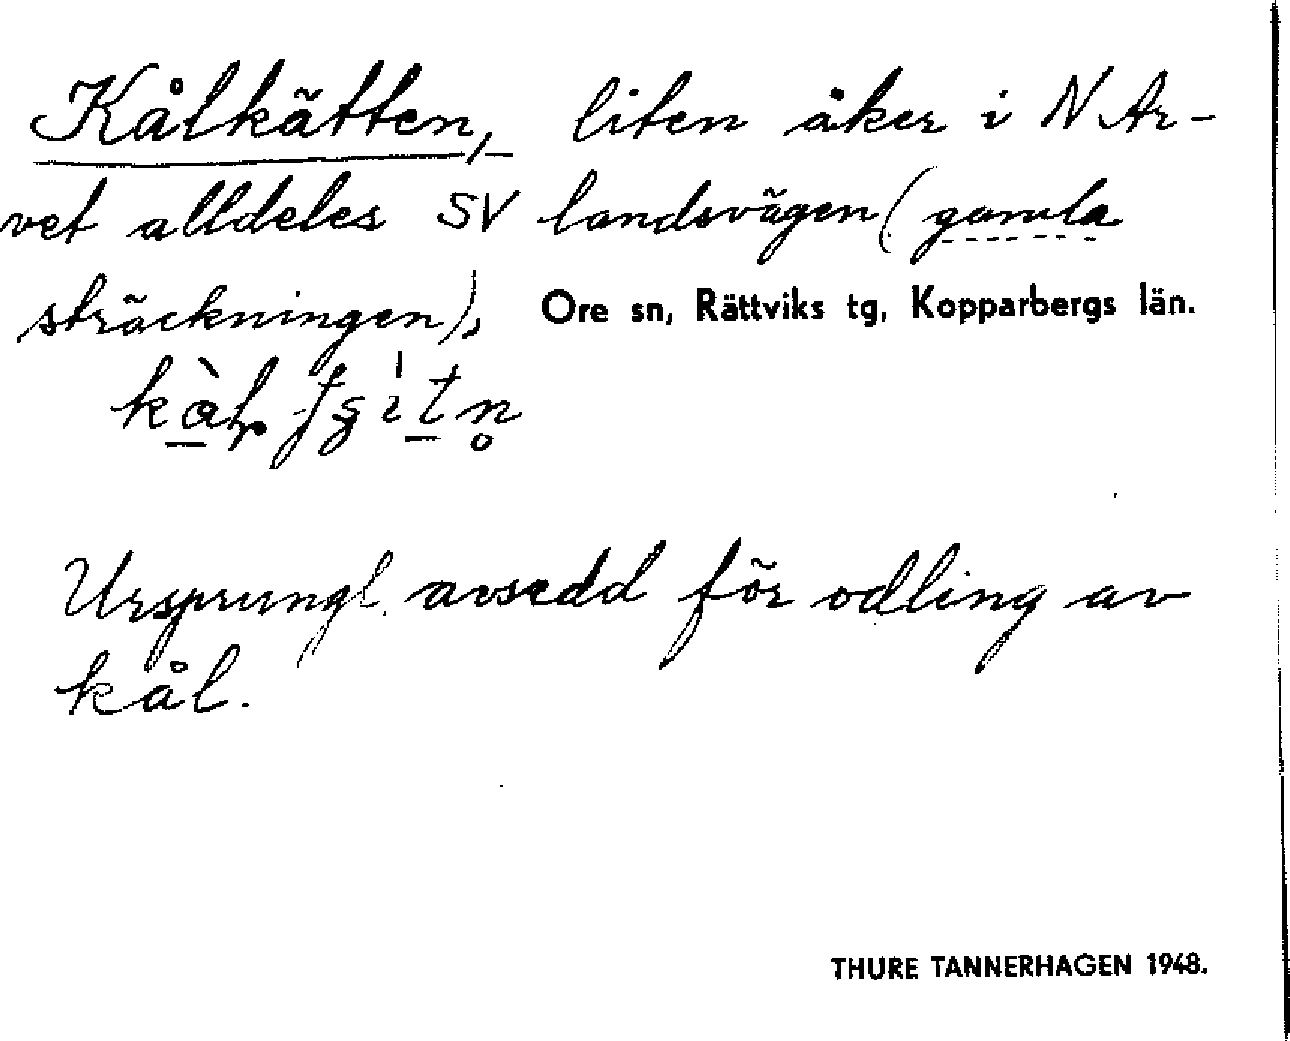 Kålkätten, liten åker i N Ar-
vet alldeles SV landsvägen (gamla
sträckningen), Ore sn, Rättviks tg, Kopparbergs län.
Ursprungl. avsedd för odling av
kål.
THURE TANNERHAGEN 1948.